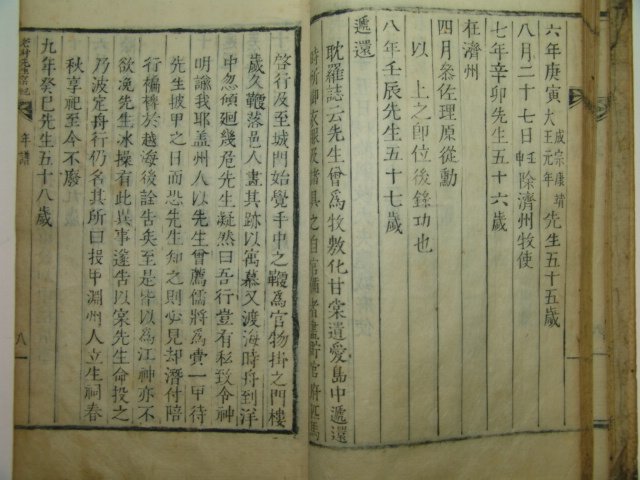 六年庚寅成宗康靖大王元年先生五十五歲
八月二十七日壬申除濟州牧使
七年辛卯先生五十六歲
在濟州
四月叅佐理原從勳
以上之卽位後錄功也
八年壬辰先生五十七歲
遞還
耽羅誌云先生曾爲牧敷化甘棠遺愛島中遞還
時所御衣服及諸具之自官備者盡
啓行及至城門始覺手中之鞭爲官物掛之門樓
歲久鞭落邑人畫其跡以寓慕又渡海時舟到洋
中忽傾廻幾危先生凝然曰吾行豈有私致令神
明諭我耶盖州人以先生曾薦儒將爲賫一甲待
先生披甲之日而恐先生知之則必見却潛付陪
行櫑擠於越海後詮告矣至是皆以爲江神亦不
欲浼先生氷操有此異事遂告以案先生命投之
乃波定舟行仍名其所曰投甲淵州人立生祠春
秋享祀至今不廢
九年癸巳先生五十八歲
年譜
八